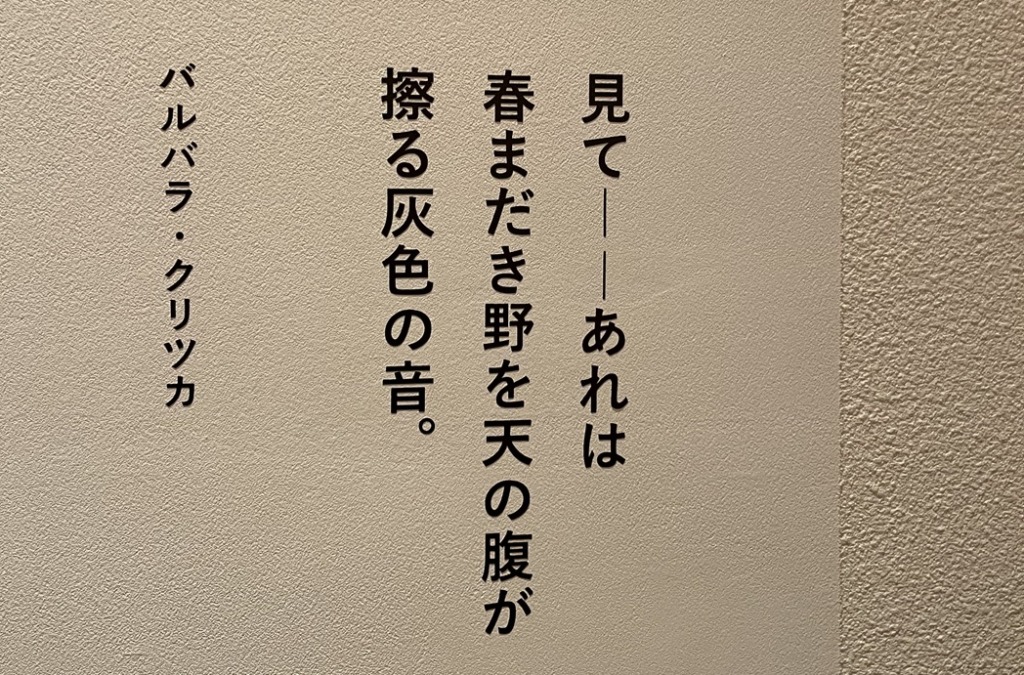 見て――あれは
春まだき野を天の腹が
擦る灰色の音。
バルバラ・クリツカ